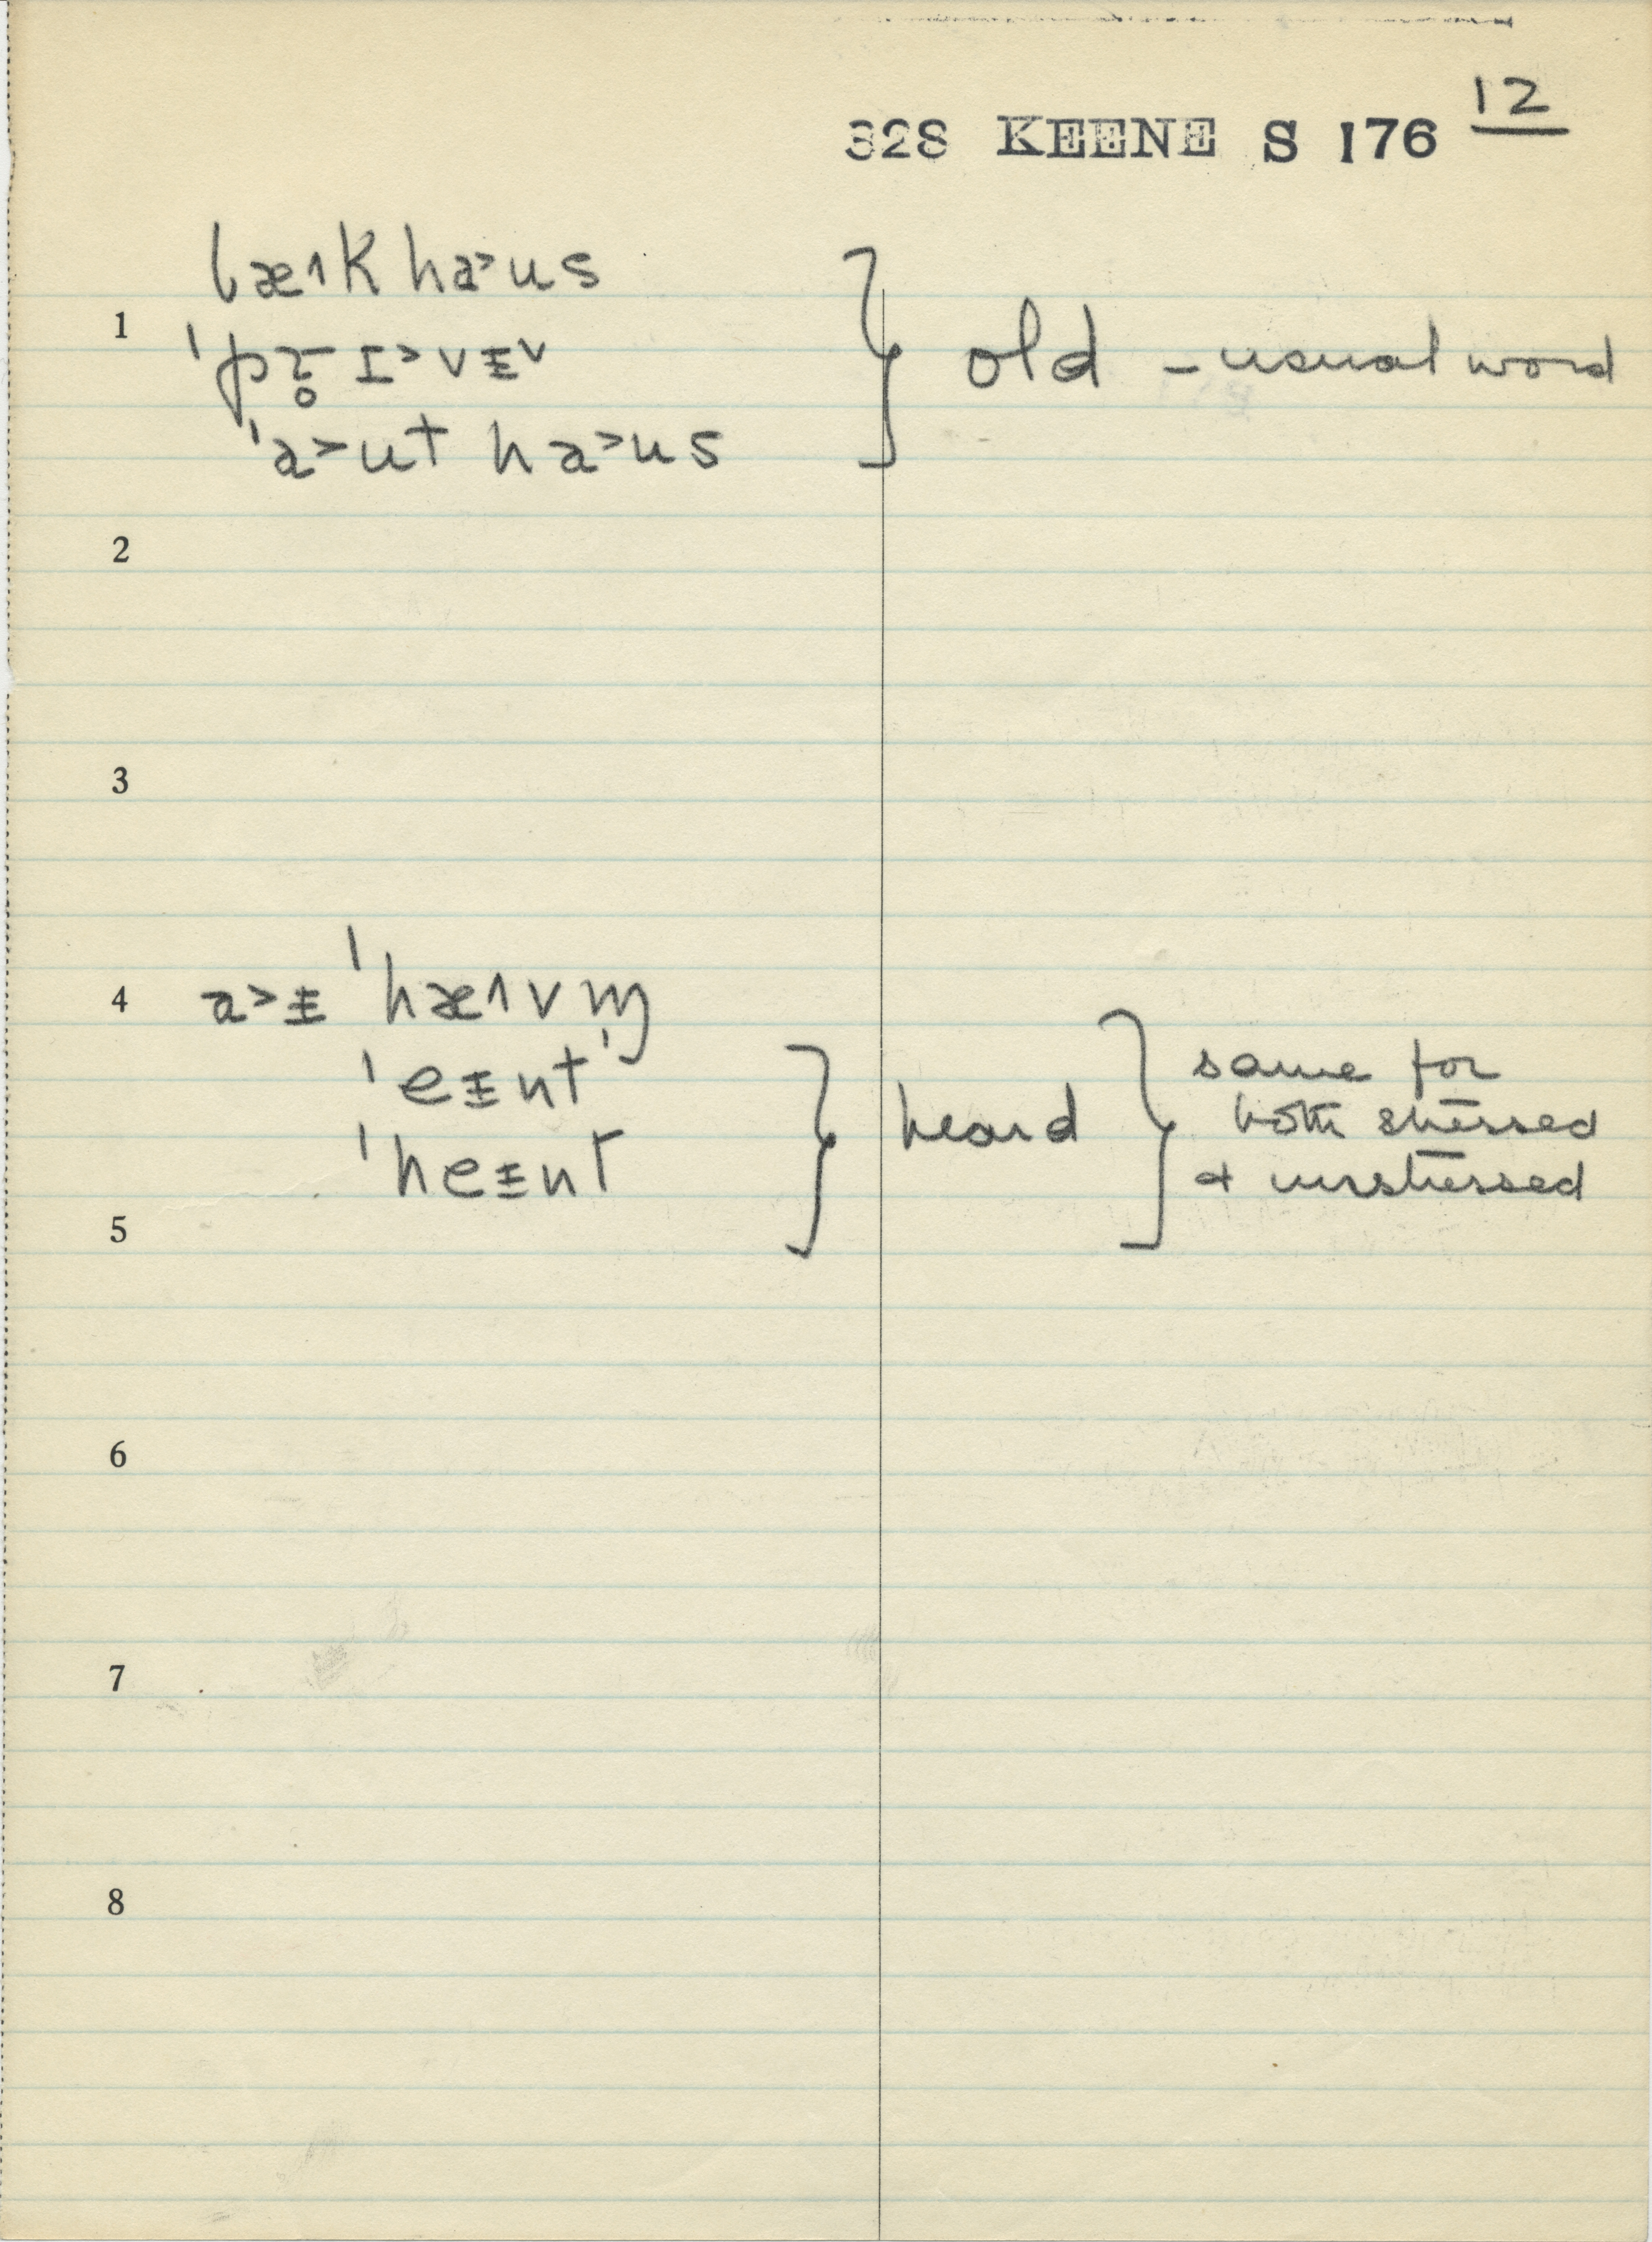 12
328 KEENE S 176
bæ˄k ha˃us
1
ˈpɹ̥ɪ˃vɨ˅
} old – usual word
ˈa˃ut ha˃us
2
3
4 a˃ɨ ˈhæ˄vm̩
ˈeɨnt
ˈheɨnt
} heard
} same for
both stressed
& unstressed
5
6
7
8